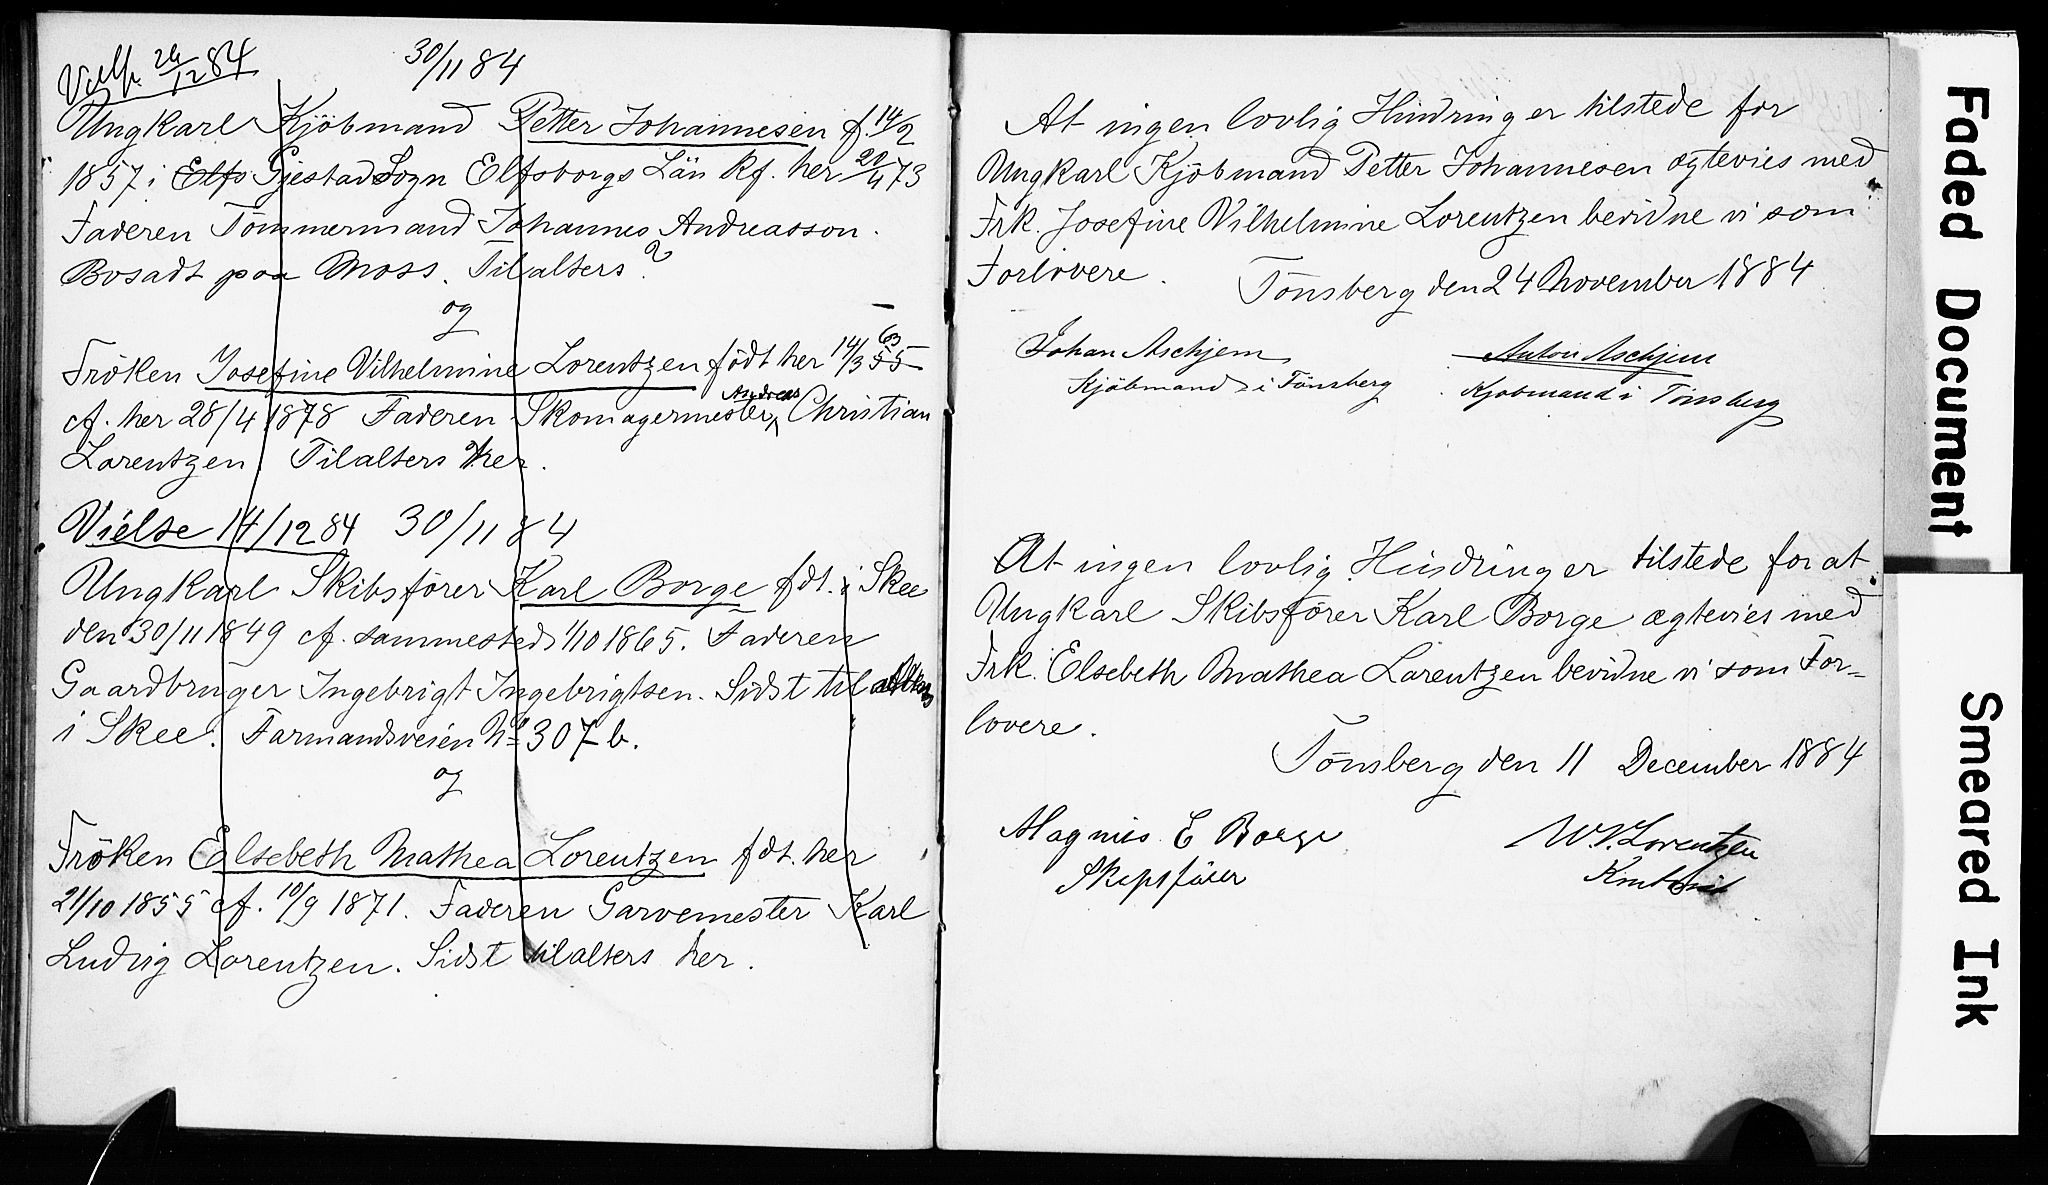 Vielse 26/12 84 30/11 84
Ungkarl Kjöbmand Petter Johannesen f. 14/2
1857 i Elfs Gjestad Sogn Elfsborgs Län Kf. her 20/4 73
Faderen Tömmermand Johannes Andreasson.
Bosadt paa Moss. Tilalters?
og
Fröken Josefine Vilhelmine Lorentzen födt her 14/3 55 63
cf. her 28/4 1878 Faderen Skomagermester Andreas Christian
Lorentzen. Tilalters her.
Vielse 14/12 84 30/11 84
Ungkarl Skibsförer Karl Borge fdt. i Skee
den 30/11 1849 cf. sammesteds 1/10 1865. Faderen
Gaardbruger Ingebrigt Ingebrigtsen. Sidst til alters
i Skee. Farmandsveien No 307 b.
og
Fröken Elsebeth Mathea Lorentzen fdt. her
21/10 1855 cf. 10/9 1871. Faderen Garvemester Karl
Ludvig Lorentzen. Sidst tilalters her.
At ingen lovlig Hindring er tilstede for
Ungkarl Kjöbmand Petter Johannesen ægtevies med
Frk. Josefine Vilhelmine Lorentzen bevidne vi som
Forlovere.
Tönsberg den 24 November 1884
Johan Aschjem Anton Aschjem
Kjöbmand i Tönsberg Kjøbmand i Tönsberg
At ingen lovlig Hindring er tilstede for at
Ungkarl Skibsförer Karl Borge ægtevies med
Frk. Elsebeth Mathea Lorentzen bevidne vi som For=
lovere.
Tönsberg den 11 December 1884
Magnus E Borge W. V. Lorentzen
Skepsförer
Faded Document
Smeared Ink